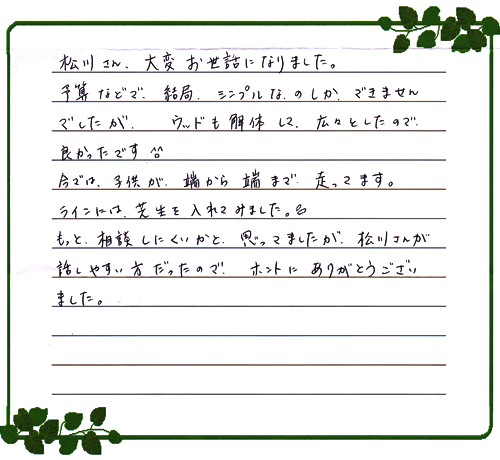 松川さん、大変お世話になりました。
予算などで、結局、シンプルな、のしか、できません
でしたが、 ウッドも解体して、広々としたので、
良かったです ^^
今では、子供が、端から端まで、走ってます。
ラインには、芝生を入れてみました。
もっと、相談しにくいかと、思ってましたが、松川さんが
話しやすい方だったので、 ホントにありがとうござい
ました。